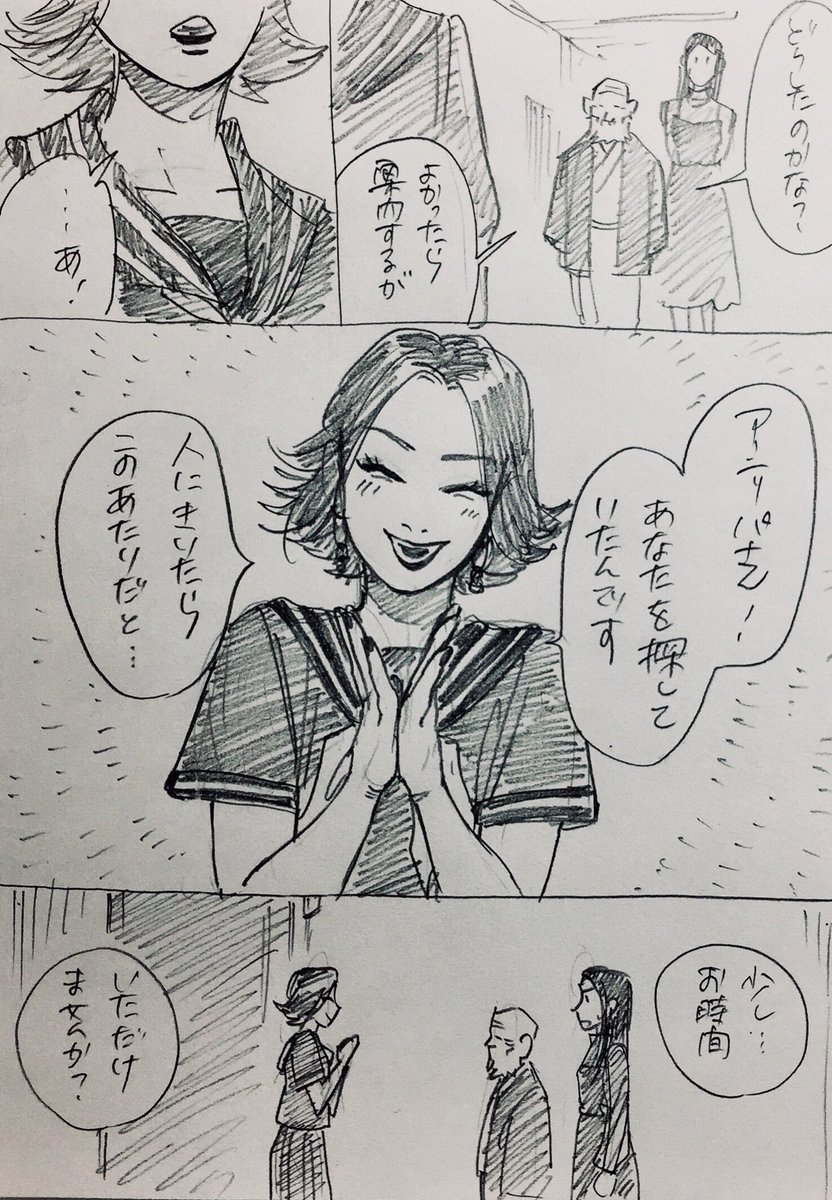 どうしたのかな?
よかったら
案内するが
…あ!
アーニャパナさん!
あなたを探して
いたんです
人にきいたら
このあたりだと…
少し…
お時間
いただけ
ませんか?